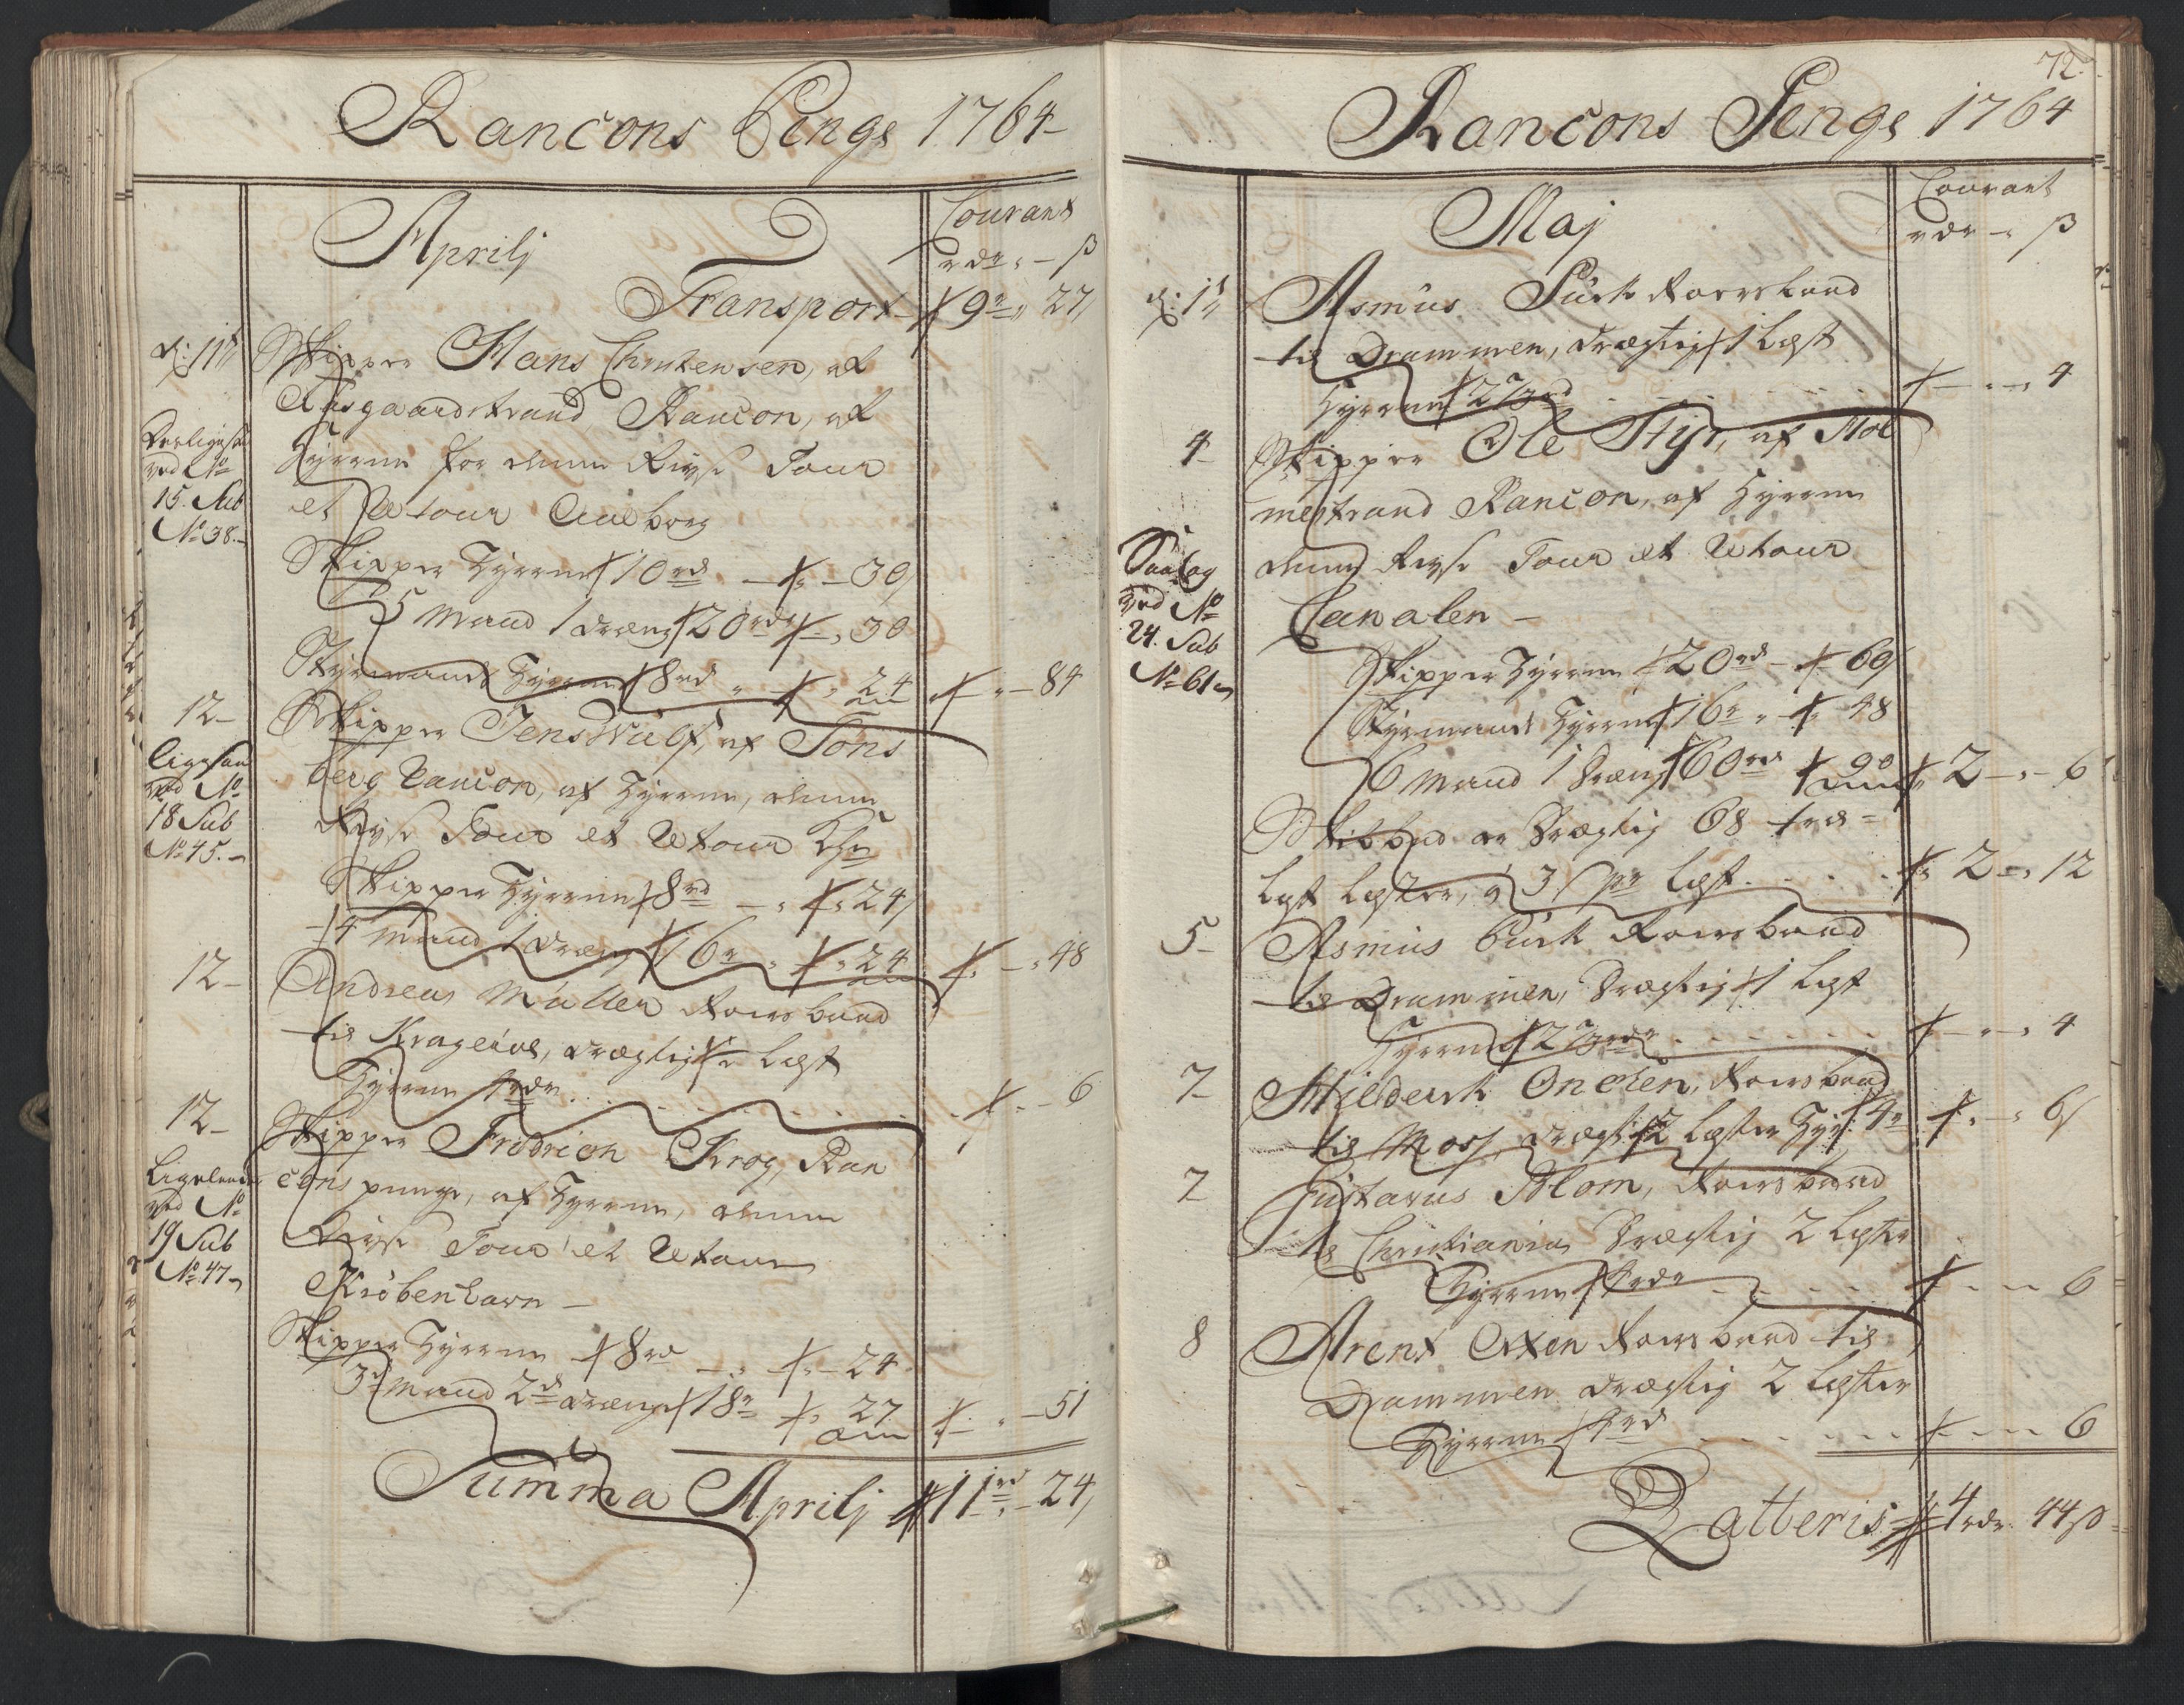 Rancons Penge 1764
Aprilj
Courant
rdr - ß
Transport 9r 27
d: 11t Skipper Hans Christensen, af
Aasgaardstrand Rancon, af
Hyrren for denne Reyse Tour
et Retour Aalborg
ved No
15. Sub
No 38.
Skipper Hyrren 10rd - 30
5 Mand 1 dreng 20rdr 30
Styrmands Hyrren 8rd 24 - 84
12 Skipper Jens Wulf, af Tons
berg Rancon, af Hyrren, denne
Reyse Tour et Retour
ved No
18 Sub
No 45.
Skipper Hyrren 8rd - 24
4 Mand 1 dreng 16r 24 - 48
12 Andreas Müller Roersbaad
til Kragerøe, drægtig Lest
Hyrren 4rdr 6
12 Skipper Fridrich Krog, Ran
cons penge, af Hyrren, denne
Reyse Tour et Retour
Kiøbenhavn
ved No
19 Sub
No 47
Skipper Hyrren 8rd - 24
3 Mand 2 drenge 18r 27 - 51
Summa Aprilj 11rd 24
72.
Rancons Penge 1764
Maj
Courant
rdr - ß
d: 1t Asmus Pürk Roersbaad
til Drammen, drægtig 1 Lest
Hyrren 2 2/3rd 4
4 Skipper Ole Styr, af Hol
mestrand Rancon, af Hyrren
denne Reyse Tour et Retour
Canalen
ved No
24. Sub
No 61
Skipper Hyrren 20rd - 60
Styrmands Hyrren 16r - 48
6 Mand 1 Dreng 60rd 90 2 - 6
Skibbed er Drægtig 68 træ=
lest Lester, a 3 ß pr Lest 2 - 12
5 Asmus Pürk Roersbaad
til Drammen, Drægtig 1 Lest
Hyrren 2 2/3rdr 4
7 Hilderk Onchen, Roersbaad
til Moss, drægtig 2 Lester Hyr: 4r 6
7 Gustavus Blom, Roersbaad
til Christiania Drægtig 2 Lester
Hyrren 4rdr 6
8 Arent Otten Roersbaad til
Drammen drægtig 2 Lester
Hyrren 4rd 6
Latteris 4rdr 44ß